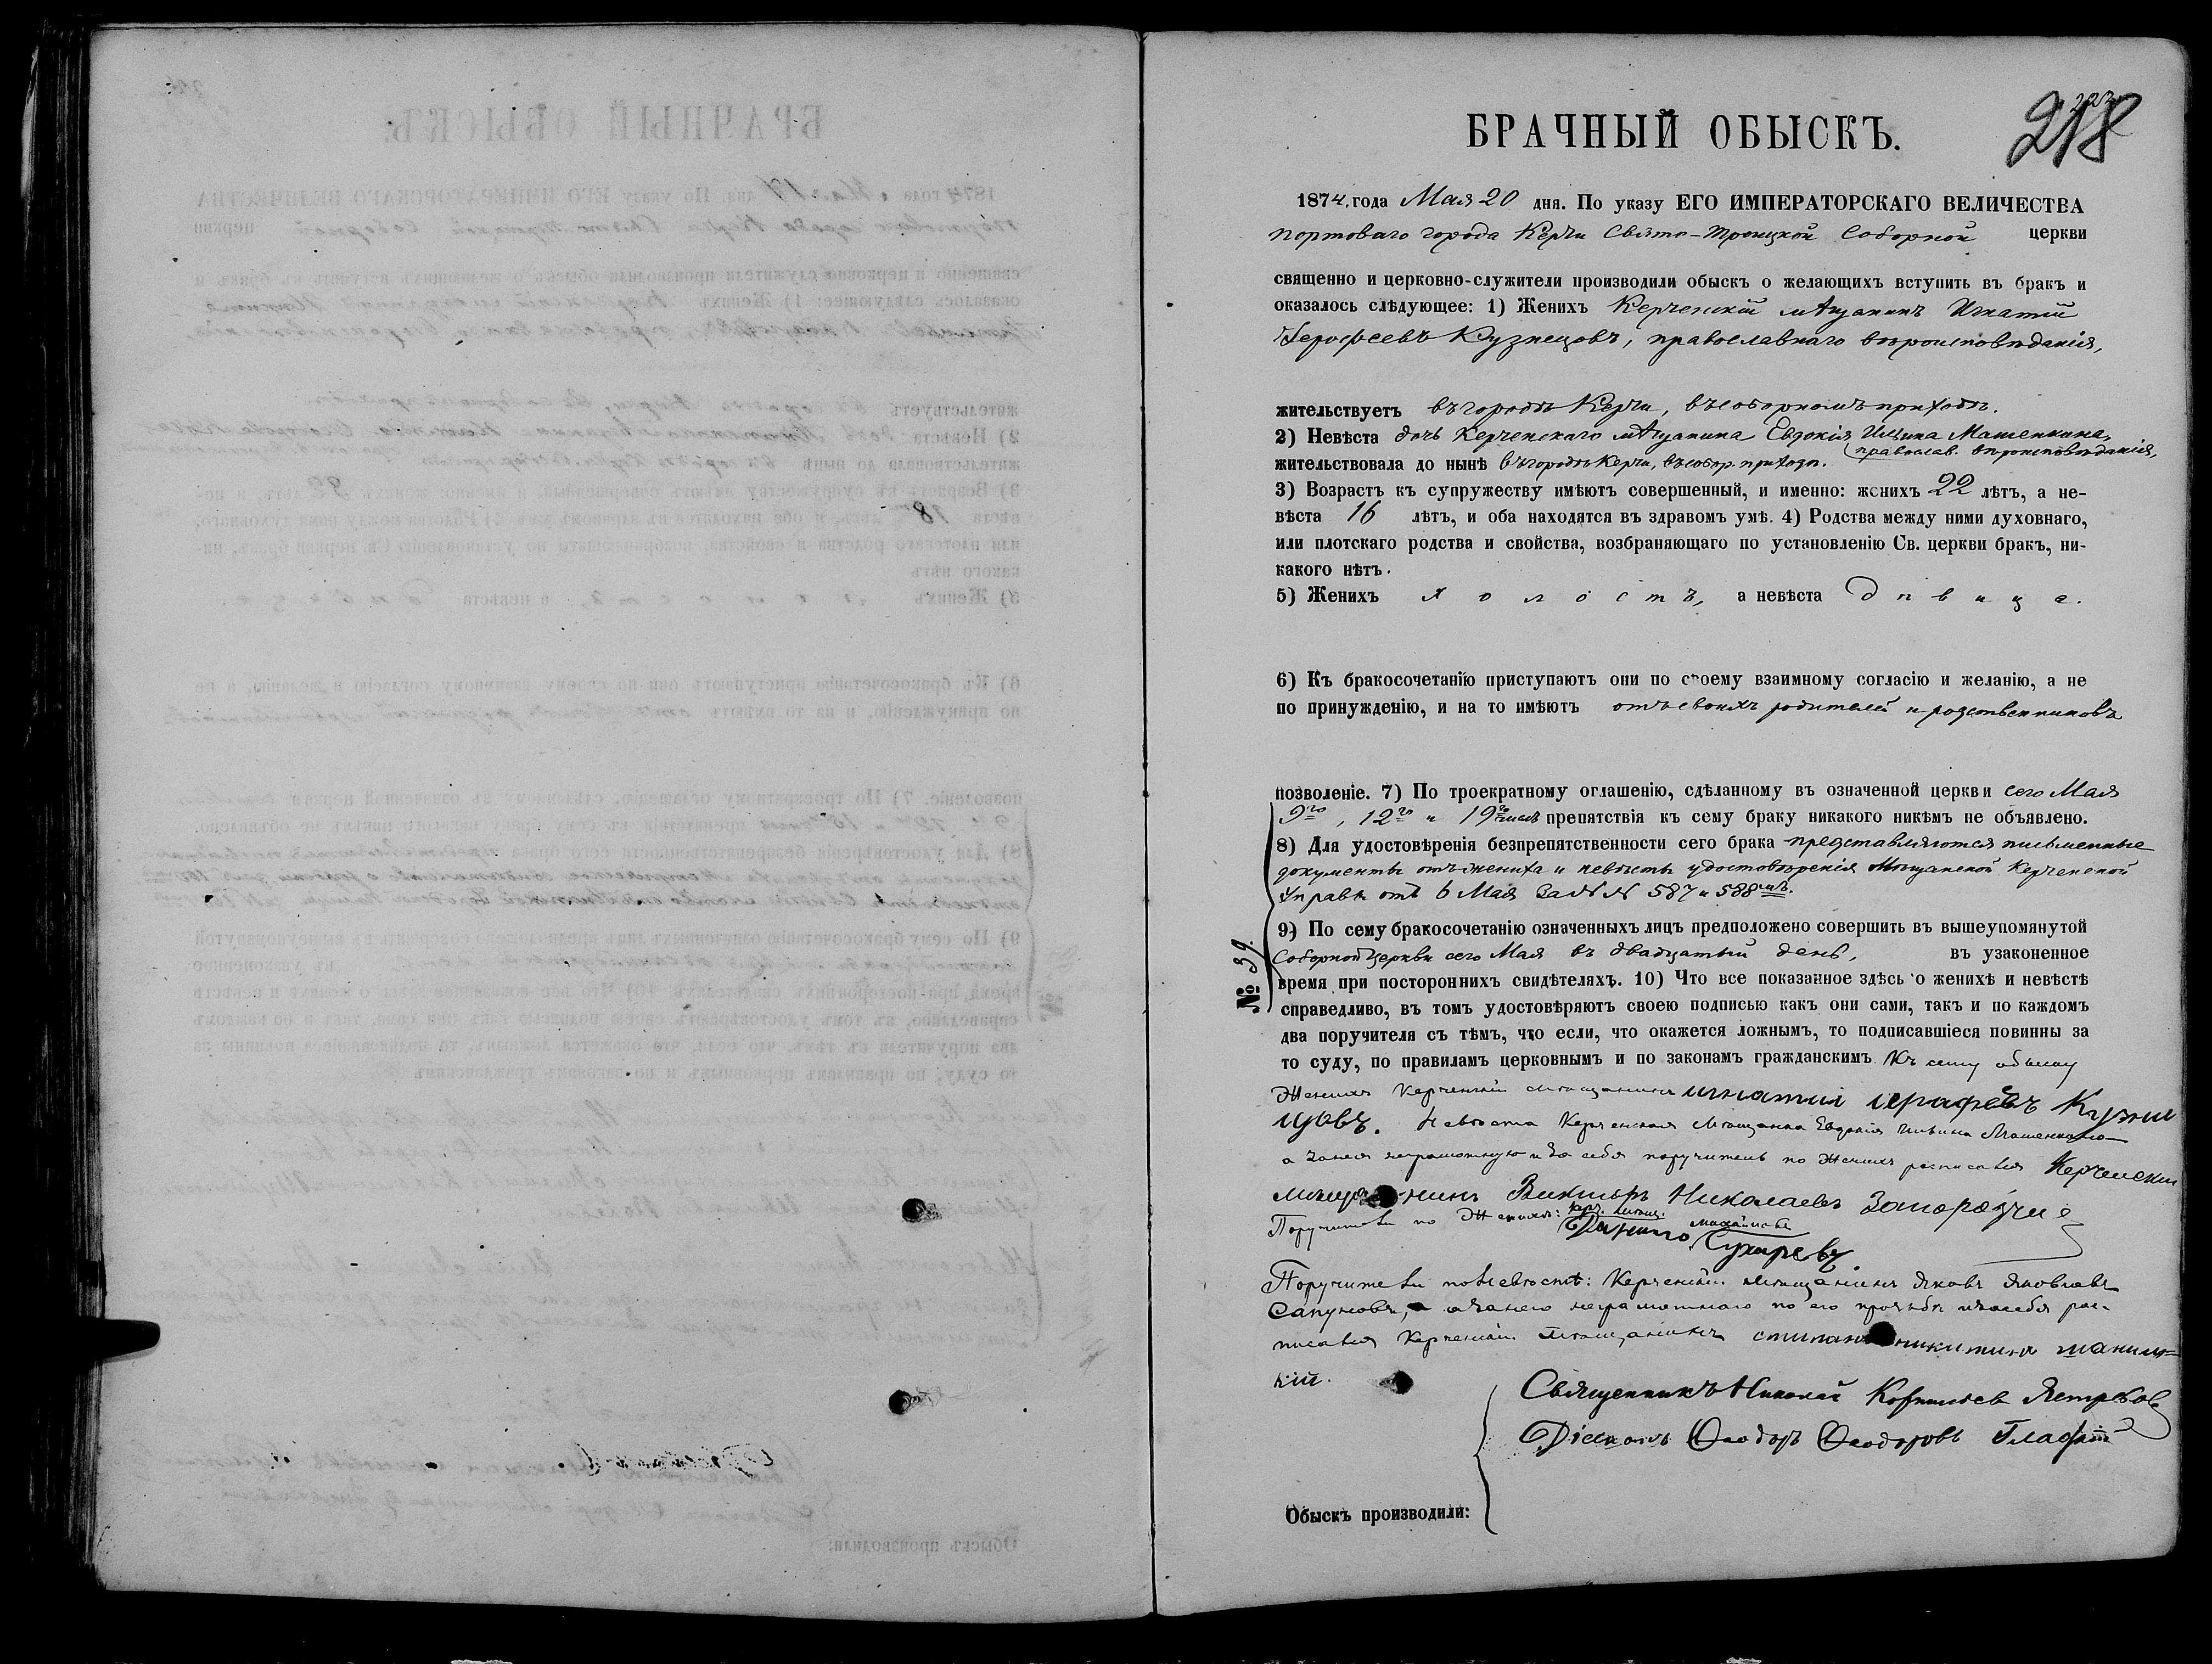 218
БРАЧНЫЙ ОБЫСКЪ.
1874 года Мая 20 дня. По указу ЕГО ИМПЕРАТОРСКАГО ВЕЛИЧЕСТВА
портоваго города Керчи Свято-Троицкой Соборной церкви
священно и церковно-служители производили обыскъ о желающихъ вступить въ бракъ и
оказалось слѣдующее: 1) Женихъ Керченскій мѣщанинъ Игнатій
Іерофеевъ Кузнецовъ, православнаго вѣроисповѣданія,
жительствуетъ въ городѣ Керчи, въ соборномъ приходѣ.
2) Невѣста дочь Керченскаго мѣщанина Евдокія Ильина Машенкина,
православ. вѣроисповѣданія,
жительствовала до нынѣ въ городѣ Керчи, въ собор. приходѣ.
3) Возрастъ къ супружеству имѣютъ совершенный, и именно: женихъ 22 лѣтъ, а не-
вѣста 16 лѣтъ, и оба находятся въ здравомъ умѣ. 4) Родства между ними духовнаго,
или плотскаго родства и свойства, возбраняющаго по установленію Св. церкви бракъ, ни-
какого нѣтъ.
5) Женихъ холостъ, а невѣста дѣвица.
6) Къ бракосочетанію приступаютъ они по своему взаимному согласію и желанію, а не
по принужденію, и на то имѣютъ отъ своихъ родителей и родственниковъ
позволеніе. 7) По троекратному оглашенію, сдѣланному въ означенной церкви сего Мая
9го, 12го и 19го чиселъ препятствія къ сему браку никакого никѣмъ не объявлено.
8) Для удостовѣренія безпрепятственности сего брака представляются письменные
документы отъ жениха и невѣсты удостовѣренія Мѣщанской Керченской
Управы отъ 6 Мая За NN 587 и 588мъ.
9) По сему бракосочетанію означенныхъ лицъ предположено совершить въ вышеупомянутой
Соборной Церкви сего Мая въ двадцатый день, въ узаконенное
№ 39.
время при постороннихъ свидѣтеляхъ. 10) Что все показанное здѣсь о женихѣ и невѣстѣ
справедливо, въ томъ удостовѣряютъ своею подписью какъ они сами, такъ и по каждомъ
два поручителя съ тѣмъ, что если, что окажется ложнымъ, то подписавшіеся повинны за
то суду, по правиламъ церковнымъ и по законамъ гражданскимъ. Къ сему обыску
Женихъ Керченскій мѣщанинъ игнатий іерафеевъ Кузне
цовъ. Невѣста Керченская мѣщанка Евдокія Ильина Машенкина
а за нея неграмотную и за себя поручитель по Женихѣ росписался Керченский
мищанинъ Виктыръ Николаевъ
Поручители по Женихѣ: Керч. мѣщ.
Данило Сухаревъ
Поручители по Невѣстѣ: Керченскій мѣщанинъ Яковъ Яковлевъ
Сапуновъ, а за него неграмотнаго по его прозьбѣ и за себя рос-
писался Керченскій Мѣщанинъ никитинъ
кій.
Священникъ Николай Корнильев Ястребов
Діаконъ Ѳеодоръ Ѳеодоровъ
Обыскъ производили: